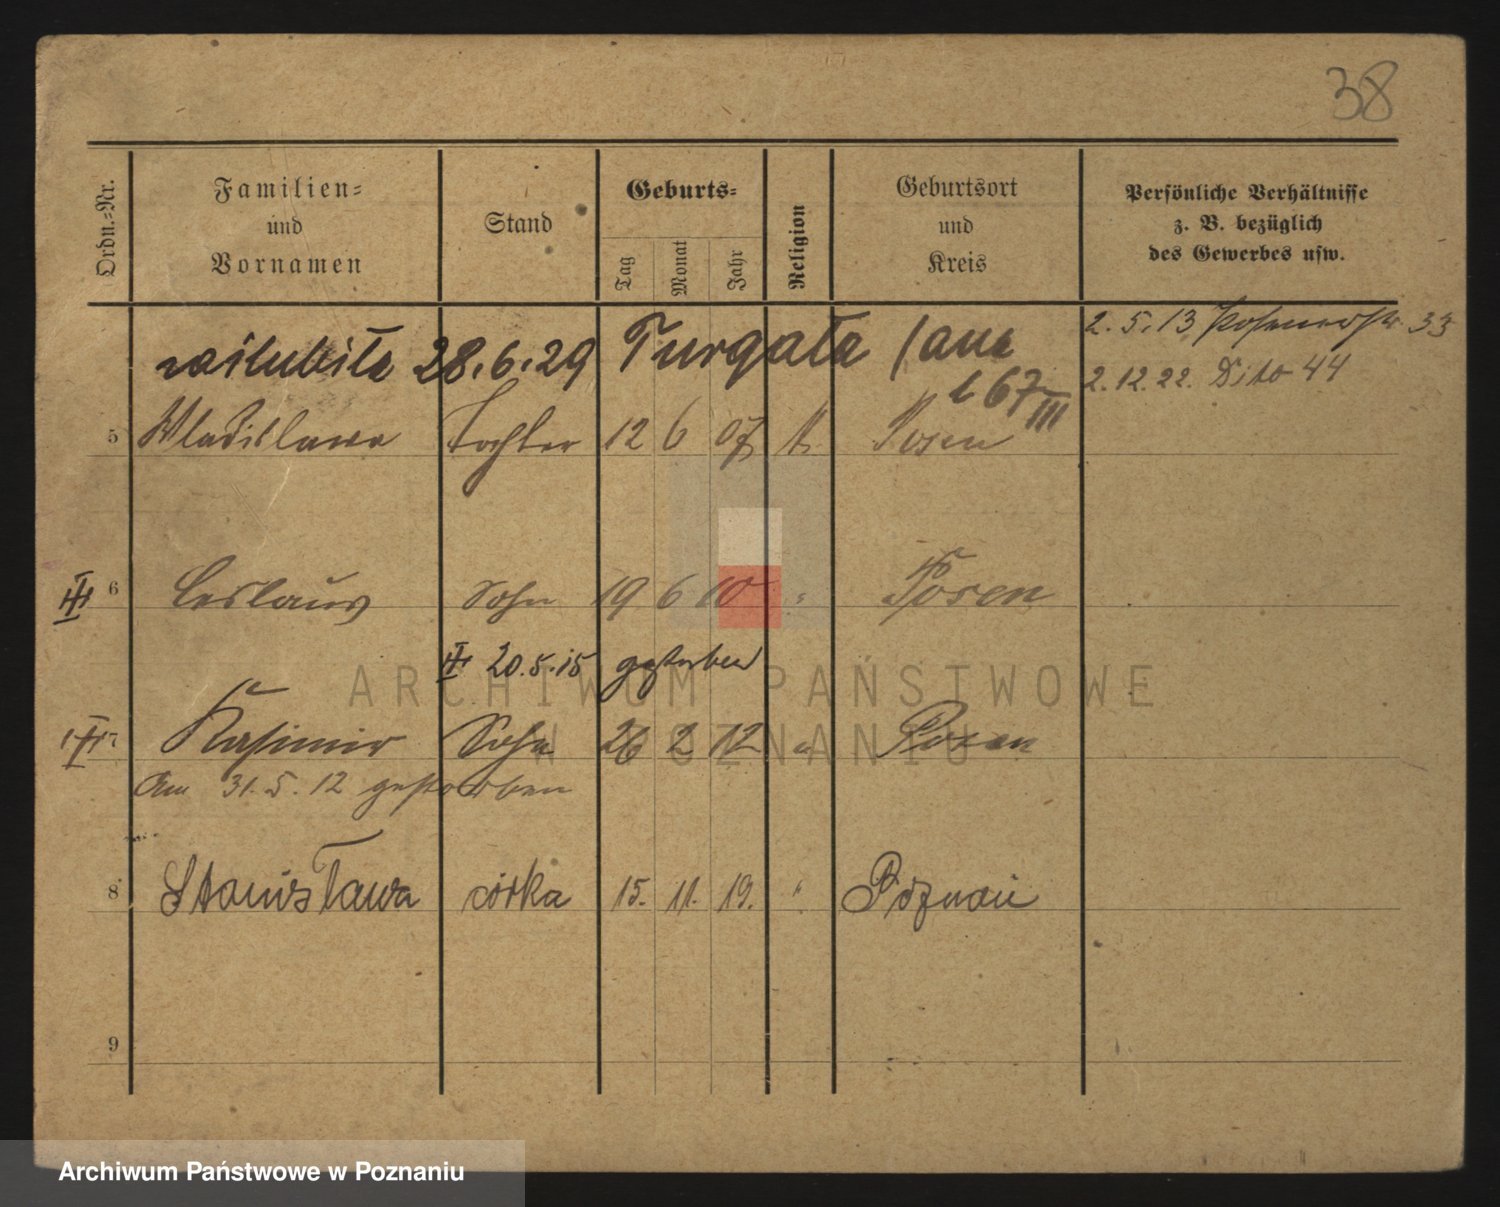 38
Ordn.=Nr.
Familien=
und
Vornamen
Stand
Geburts=
Tag
Monat
Jahr
Religion
Geburtsort
und
Kreis
Persönliche Verhältnisse
z. B. bezüglich
des Gewerbes usw.
2. 5. 13 Posenerstr. 33
28.6.29 Turgata Jana
2.12.22. Dito 44
l 67 III
5 Wladislawa Tochter 12 6 07 k. Posen
6 Ceslaus Sohn 19 6 10 " Posen
20.5.15 gestorben
7 Kasimir Sohn 26 2 12 " Posen
Am 31.5.12 gestorben
8 Stanisława córka 15. 11. 19. " Poznań
9
ARCHIWUM PAŃSTWOWE
W POZNANIU
Archiwum Państwowe w Poznaniu